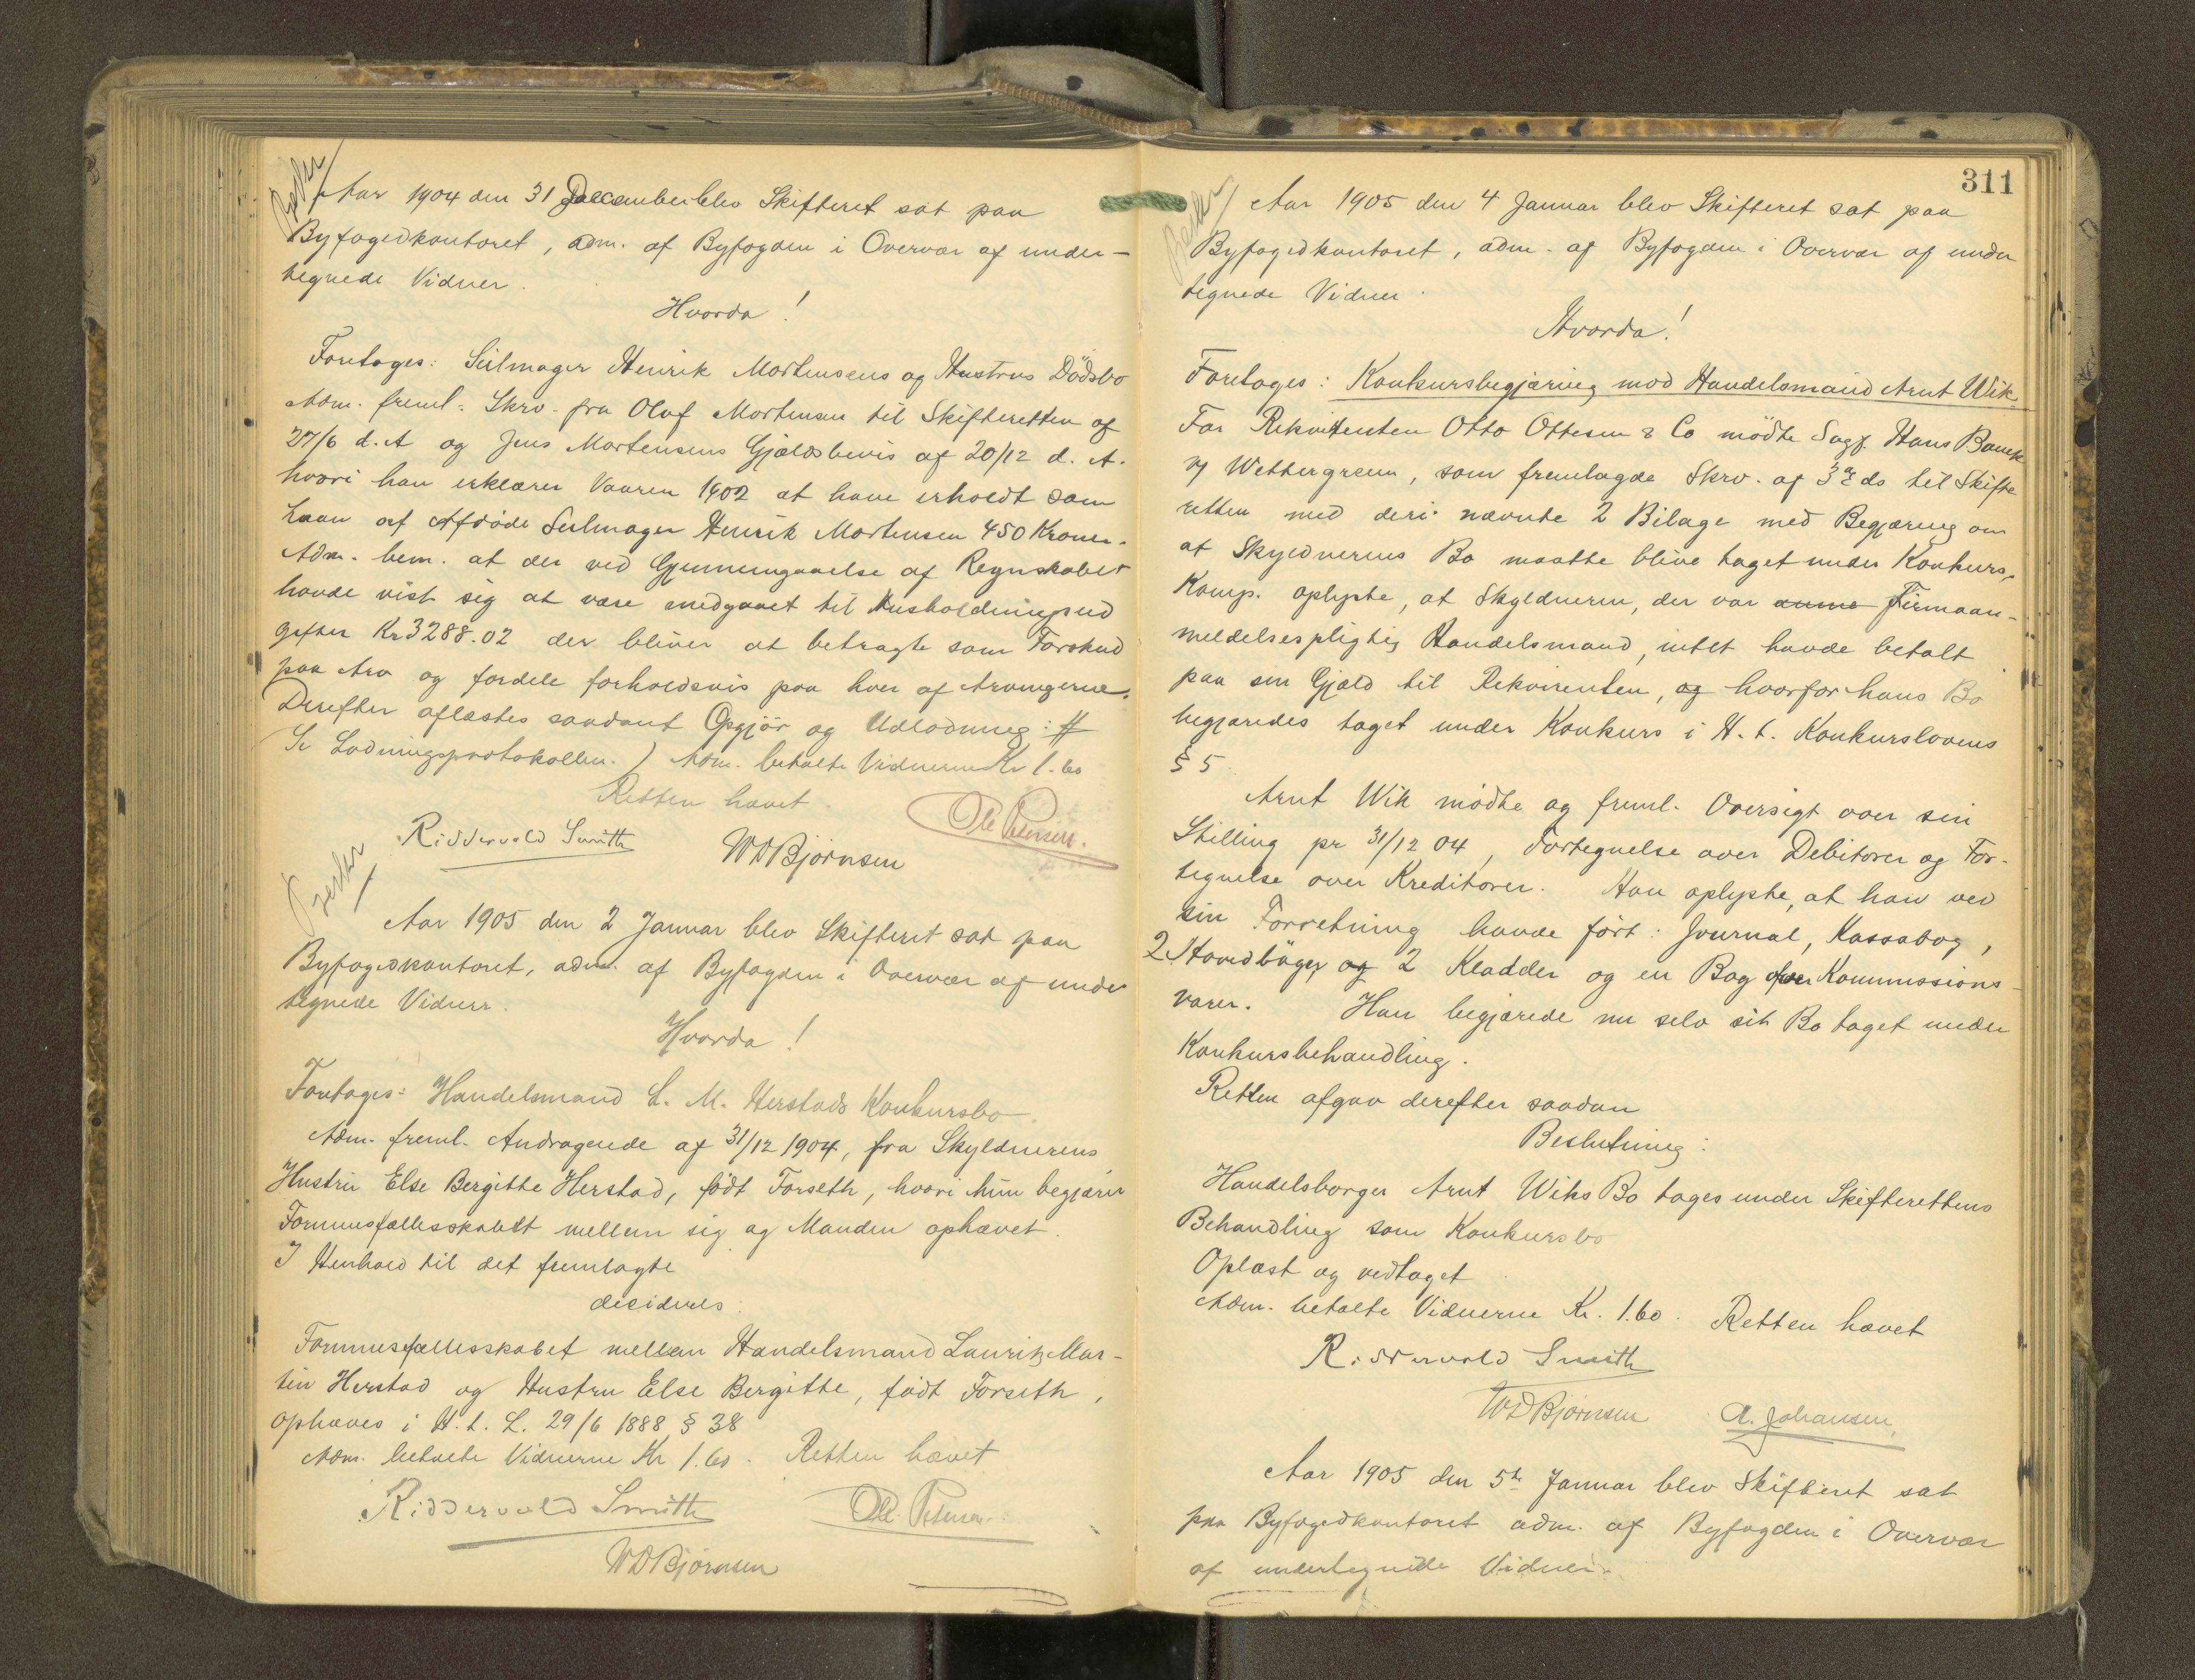 Aar 1904 den 31 December blev Skifteret sat paa
Byfogedkontoret, adm. af Byfogden i Overvær af under-
tegnede Vidner.
Hvorda!
Foretoges: Seilmager Henrik Mortensens og Hustrus Dödsbo
Adm. freml. Skrv. fra Olaf Mortensen til Skifteretten af
27/6 d. A og Jens Mortensens Gjældsbevis af 20/12 d. A.
hvori han erklærer Vaaren 1902 at have erholdt som
Laan af Afdöde Seilmager Henrik Mortensen 450 Kroner.
Adm. bem. at der ved Gjennemgaaelse af Regnskabet
havde vist sig at være medgaaet til Husholdningsud
gifter Kr 3288.02 der bliver at betragte som Forskud
paa Arv og fordele forholdsvis paa hver af Arvingerne.
Derefter aflæstes saadant Opgjör og Udlodning: #
Se Lodningsprotokollen.) Adm. betalte Vidnerne Kr 1.60
Retten hævet.
Riddervold Smith
WDBjörnsen
Ole Petersen.
Aar 1905 den 2 Januar blev Skifteret sat paa
Byfogedkontoret, adm. af Byfogden i Overvær af under
tegnede Vidner.
Hvorda!
Foretoges: Handelsmand L. M. Herstads Konkursbo
Adm. freml. Andragende af 31/12 1904, fra Skyldnerens
Hustru Else Bergitte Herstad, födt Forseth, hvori hun begjærer
Formuesfællesskabet mellem sig og Manden ophævet.
I Henhold til det fremlagte
decideres.
Formuesfællesskabet mellem Handelsmand Lauritz Mar-
tin Herstad og Hustru Else Bergitte, födt Forseth,
ophæves i H. t. L. 29/6 1888 § 38
Adm. betalte Vidnerne Kr 1.60. Retten hævet
Riddervold Smith
Ole Petersen.
WDBjörnsen
311
Aar 1905 den 4 Januar blev Skifteret sat paa
Byfogedkontoret, adm. af Byfogden i Overvær af under
tegnede Vidner.
Hvorda!
Foretoges: Konkursbegjæring mod Handelsmand Arnt Wik.
For Rekvirenten Otto Ottesen & Co mödte Sagf. Hans Bauck
v/ Wettergreen, som fremlagde Skrv. af 3die ds til Skifte
retten med deri nævnte 2 Bilage med Begjæring om
at Skyldnerens Bo maatte blive taget under Konkurs.
Komp. oplyste, at Skyldneren, der var Firmaan-
meldelsespligtig Handelsmand, intet havde betalt
paa sin Gjæld til Rekvirenten, og hvorfor hans Bo
begjæredes taget under Konkurs i H. t. Konkurslovens
§ 5
Arnt Wik mödte og freml. Oversigt over sin
Stilling pr 31/12 04, Fortegnelse over Debitorer og For-
tegnelse over Kreditorer. Han oplyste, at han ved
sin Forretning havde fört: Journal, Kassabog,
2 Hovedböger og 2 Kladder og en Bog over Kommissions-
varer. Han begjærede nu selv sit Bo taget under
Konkursbehandling.
Retten afgav derefter saadan
Beslutning:
Handelsborger Arnt Wiks Bo tages under Skifterettens
Behandling som Konkursbo
Oplæst og vedtaget
Adm. betalte Vidnerne Kr. 1.60. Retten hævet
Riddervold Smith
WDBjörnsen A. Johansen,
Aar 1905 den 5te Januar blev Skifteret sat
paa Byfogedkontoret adm. af Byfogden i Overvær
af undertegnede Vidner.